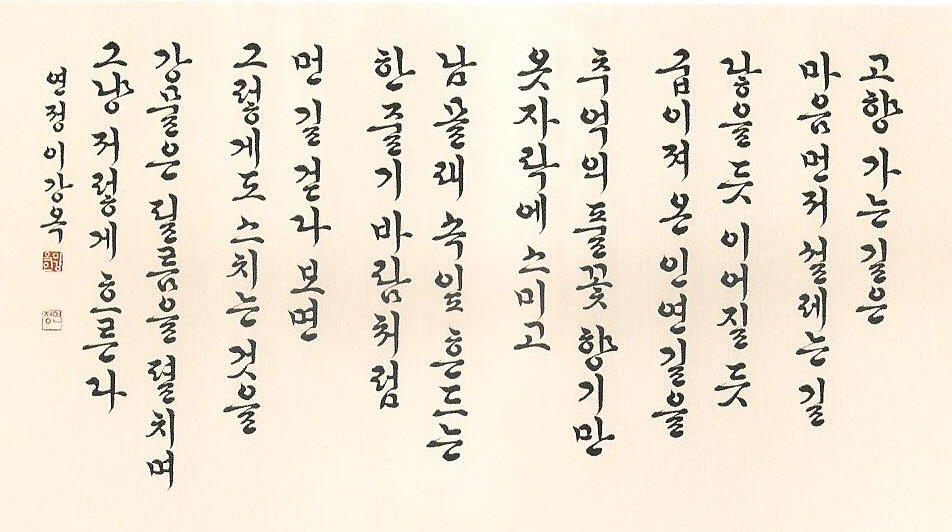 고향 가는 길은
마음 먼저 설레는 길
닿을 듯 이어질 듯
굽이져 온 인연길을
추억의 풀꽃 향기만
옷자락에 스미고
남몰래 속잎 흔드는
한 줄기 바람처럼
먼 길 걷다 보면
그렇게도 스치는 것을
강물은 필름을 펼치며
그냥 저렇게 흐른다
연정 이강옥